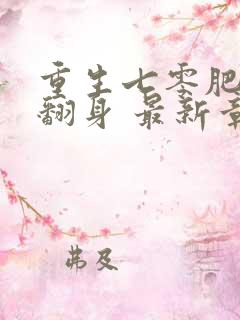 重生七零肥
翻身 最新章
弗及